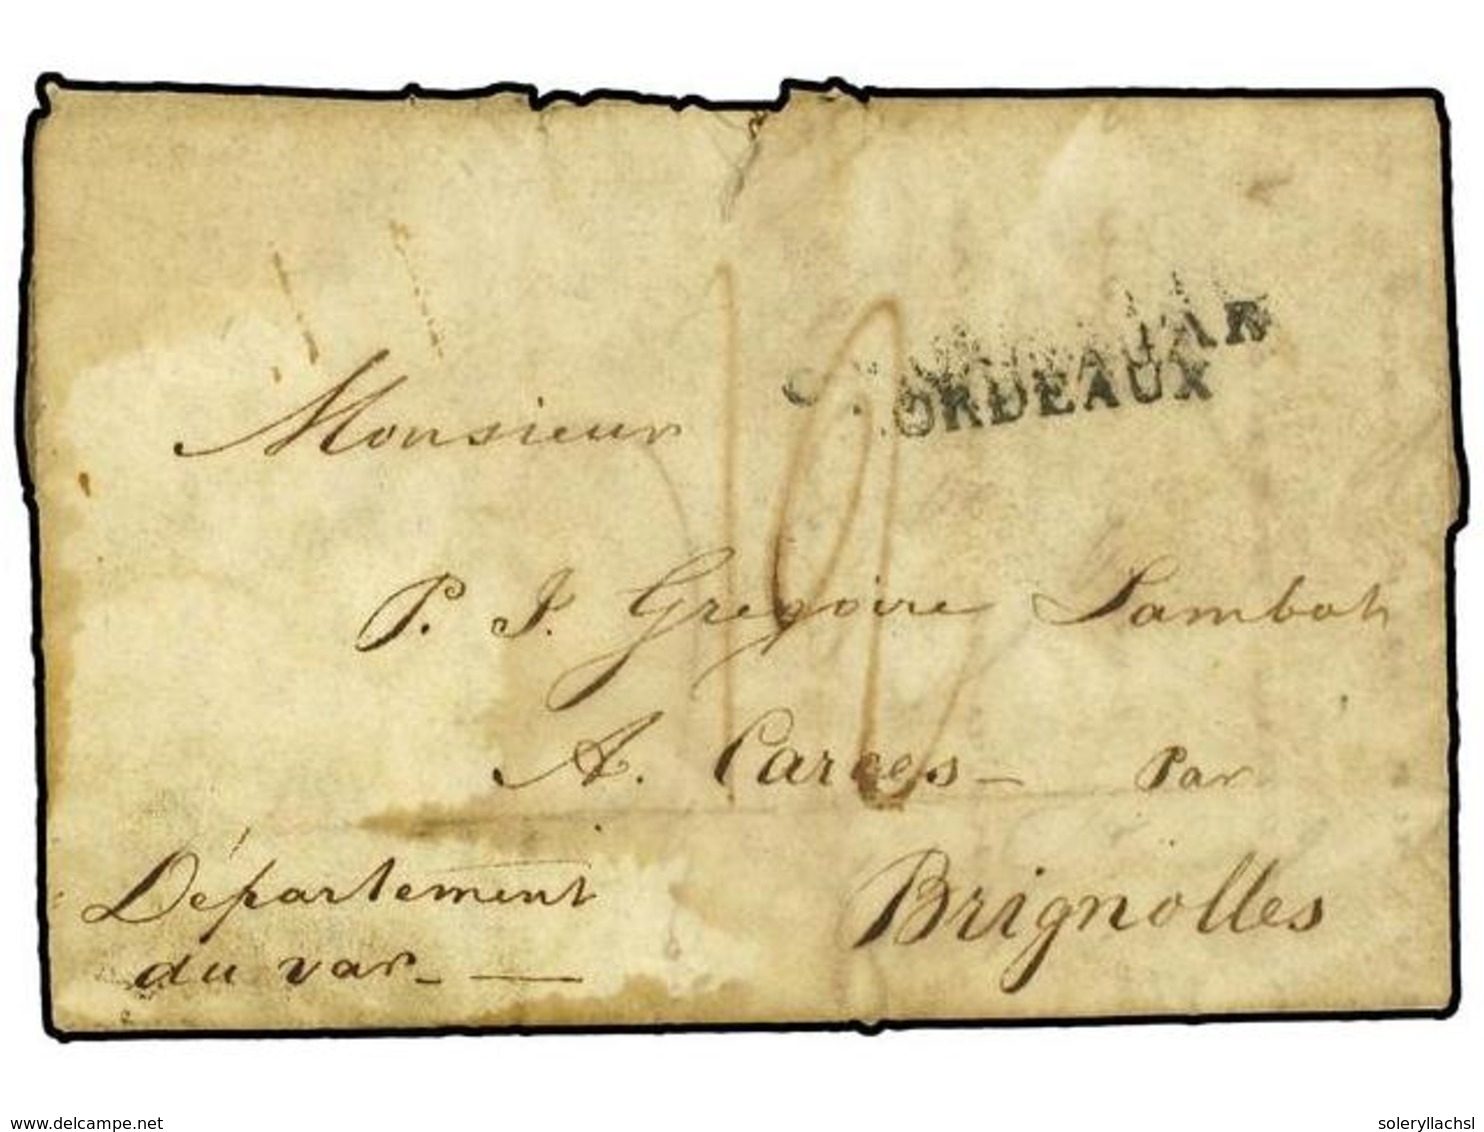 PAR
BORDEAUX
Monsieur
19
P. J. Gregoire Lambot
A. Carces - Par
Brignolles
Département
du var -
delcampe.net
soleryllachsl